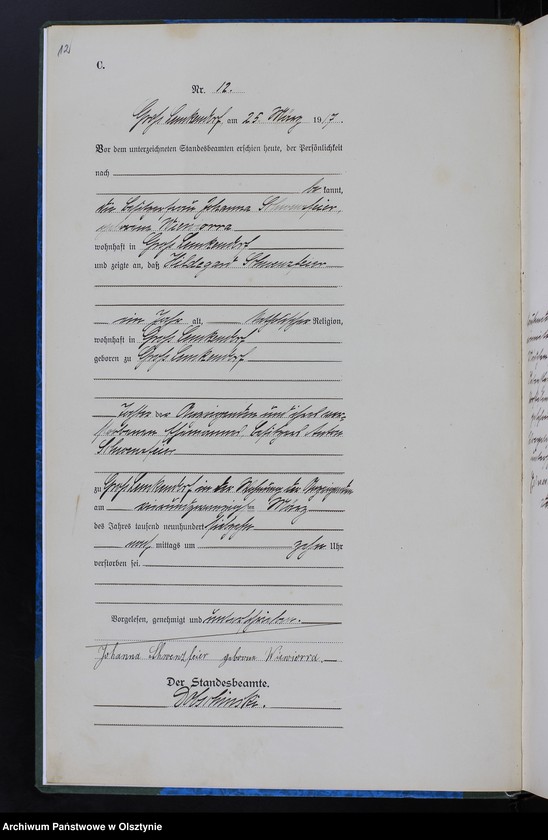 12
C.
Nr. 12.
Groß Lemkendorf am 25. März 1917.
Vor dem unterzeichneten Standesbeamten erschien heute, der Persönlichkeit
nach
be kannt,
die Besitzerfrau Johanna Schwenzfeier,
geborene Wiewiorra
wohnhaft in Groß Lemkendorf
und zeigte an, daß Hildegard Schwenzfeier
ein Jahr alt, katholischer Religion,
wohnhaft in Groß Lemkendorf
geboren zu Groß Lemkendorf
Tochter der Anzeigenden und ihres ver-
storbenen Ehemannes, Besitzers Anton
Schwenzfeier
zu Groß Lemkendorf, in der Wohnung der Anzeigenden
am vierundzwanzigsten März
des Jahres tausend neunhundert siebzehn
nach mittags um zehn Uhr
verstorben sei.
Vorgelesen, genehmigt und unterschrieben.
Johanna Schwenzfeier geborene Wiewiorra.
Der Standesbeamte.
Archiwum Państwowe w Olsztynie